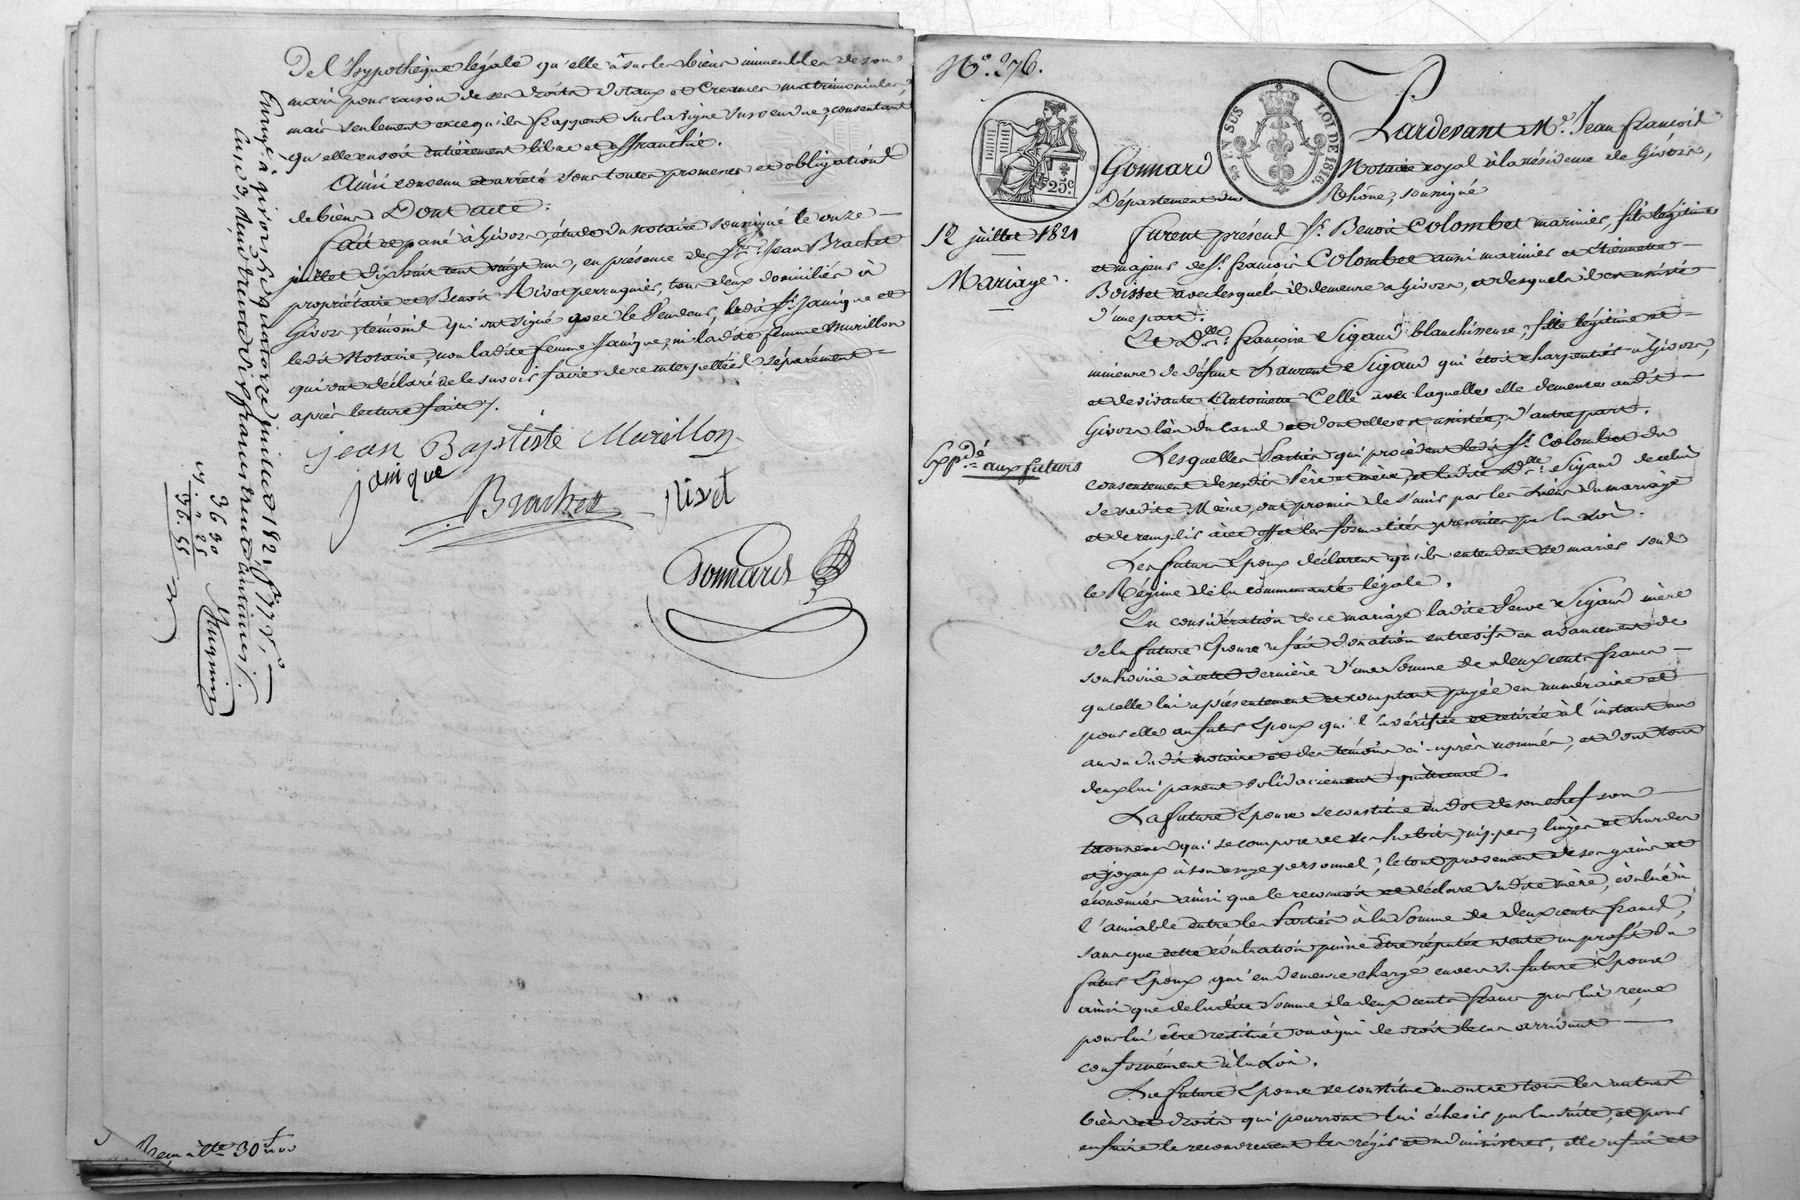 De l'hypothèque légale qu'elle a sur les biens immeubles de son
mari pour raison de ses droits dotaux et Créances matrimoniales,
mais seulement en ce qu'ils frappent sur la vigne susvendue, consentant
qu'elle en soit entièrement libre et affranchie.
Ainsi convenu et arrêté sous toutes promesses et obligations
de biens Dont acte.
Fait et passé à Givors, étude du notaire soussigné le onze
juillet dix huit cent vingt un, en présence des Srs. Jean Brachet
propriétaire et Benoit Rivet perruquier, tous deux domiciliés à
Givors, témoins qui ont signé avec le Vendeur, ledit Sr. Janique et
ledit Notaire, non ladite femme Janique, ni ladite femme Murillon
qui ont déclaré ne le savoir faire de ce interpellées séparément
après lecture faite.
jean Baptiste Murillon
janique
Brachet
Rivet
Gonnard
Enregé. à givors le quatorze juillet 1821, fo. 77
Reçu
36 30
25
36. 55
30
No. 276.
25 c
EN SUS
LOI DE 1816.
Pardevant Me. Jean François
Gonnard Notaire royal à la résidence de Givors,
Département du Rhône, soussigné
12 juillet 1821
Mariage.
Furent présens, Sr. Benoit Colombet marinier, fils légitime
et majeur de Sr. françois Colombet aussi marinier et Etiennette
Boisset avec lesquels il demeure à Givors, et desquels il est assisté
d'une part;
Et Dlle. françoise Sigaud blanchisseuse, fille légitime et
mineure de défunt Laurent Sigaud qui étoit charpentier à Givors,
et de vivante Antoinette Celle avec laquelle elle demeure audit
Givors lieu du Canal et dont elle est assistée, d'autre part.
Expdé. aux futurs
Lesquelles Parties qui procèdent ledit Sr. Colombet du
consentement de sesdits Père et mère, et ladite Dlle. Sigaud de celui
de sadite Mère, ont promis de s'unir par les liens du mariage
et de remplir à cet effet les formalités prescrites par la Loi.
Les futurs Epoux déclarent qu'ils entendent se marier sous
le Régime de la communauté légale.
En considération de ce mariage ladite Veuve Sigaud mère
de la future Epouse a fait donation entrevifs en avancement de
son hoirie à cette dernière d'une Somme de deux cents francs
qu'elle lui a présentement et comptant payée en numéraire et
pour elle au futur Epoux qui l'a vérifiée et retirée à l'instant au
vu dudit notaire et des témoins ci-après nommés, et dont tous
deux lui passent solidairement quittance.
La future Epouse se constitue en dot de son chef son
trousseau qui se compose de ses habits, nippes, linges et hardes
et joyaux à son usage personnel; le tout provenant de ses gains et
économies ainsi que le reconnoit et déclare sadite mère, évalué à
l'amiable entre les Parties à la Somme de deux cents francs,
sans que cette évaluation puisse être réputée vente au profit du
futur Epoux qui en demeure chargé envers sa future Epouse
ainsi que de ladite Somme de deux cents francs par lui reçue
pour lui être restituée ou à qui de droit le cas arrivant
conformément à la Loi.
La future Epouse se constitue en outre tous les autres
biens et droits qui pourront lui échoir par la suite, et pour
en faire le recouvrement les régir et administrer, elle a fait et